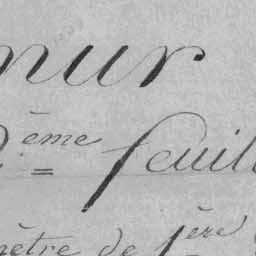 nur
2.ème feuill
mètre de 1ère